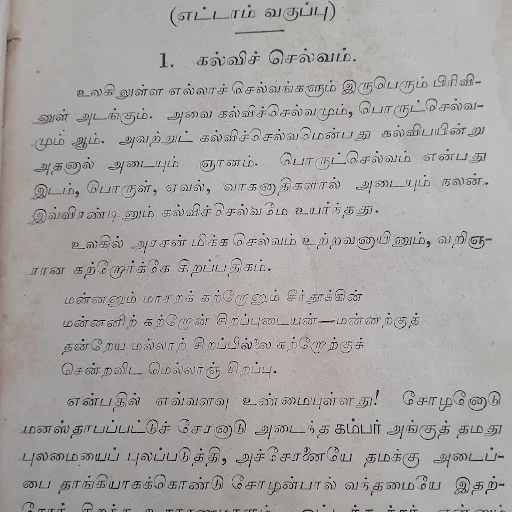 (எட்டாம் வகுப்பு)
1. கல்விச் செல்வம்.
உலகிலுள்ள எல்லாச் செல்வங்களும் இருபெரும் பிரிவி-
னுள் அடங்கும். அவை கல்விச்செல்வமும், பொருட்செல்வ-
மும் ஆம். அவற்றுட் கல்விச்செல்வமென்பது கல்விபயின்று
அதனால் அடையும் ஞானம். பொருட்செல்வம் என்பது
இடம், பொருள், ஏவல், வாகனாதிகளால் அடையும் நலன்.
இவ்விரண்டினும் கல்விச்செல்வமே உயர்ந்தது.
உலகில் அரசன் மிக்க செல்வம் உற்றவனாயினும், வறிஞ-
ரான கற்றோர்க்கே சிறப்பதிகம்.
மன்னனும் மாசறக் கற்றோனும் சீர்தூக்கின்
மன்னனிற் கற்றோன் சிறப்புடையன்—மன்னற்குத்
தன்றேய மல்லாற் சிறப்பில்லை கற்றோற்குச்
சென்றவிட மெல்லாஞ் சிறப்பு.
என்பதில் எவ்வளவு உண்மையுள்ளது! சோழனோடு
மனஸ்தாபப்பட்டுச் சேரனாடு அடைந்த கம்பர் அங்குத் தமது
புலமையைப் புலப்படுத்தி, அச்சேரனையே தமக்கு அடைப்-
பை தாங்கியாகக்கொண்டு சோழன்பால் வந்தமையே இதற்-